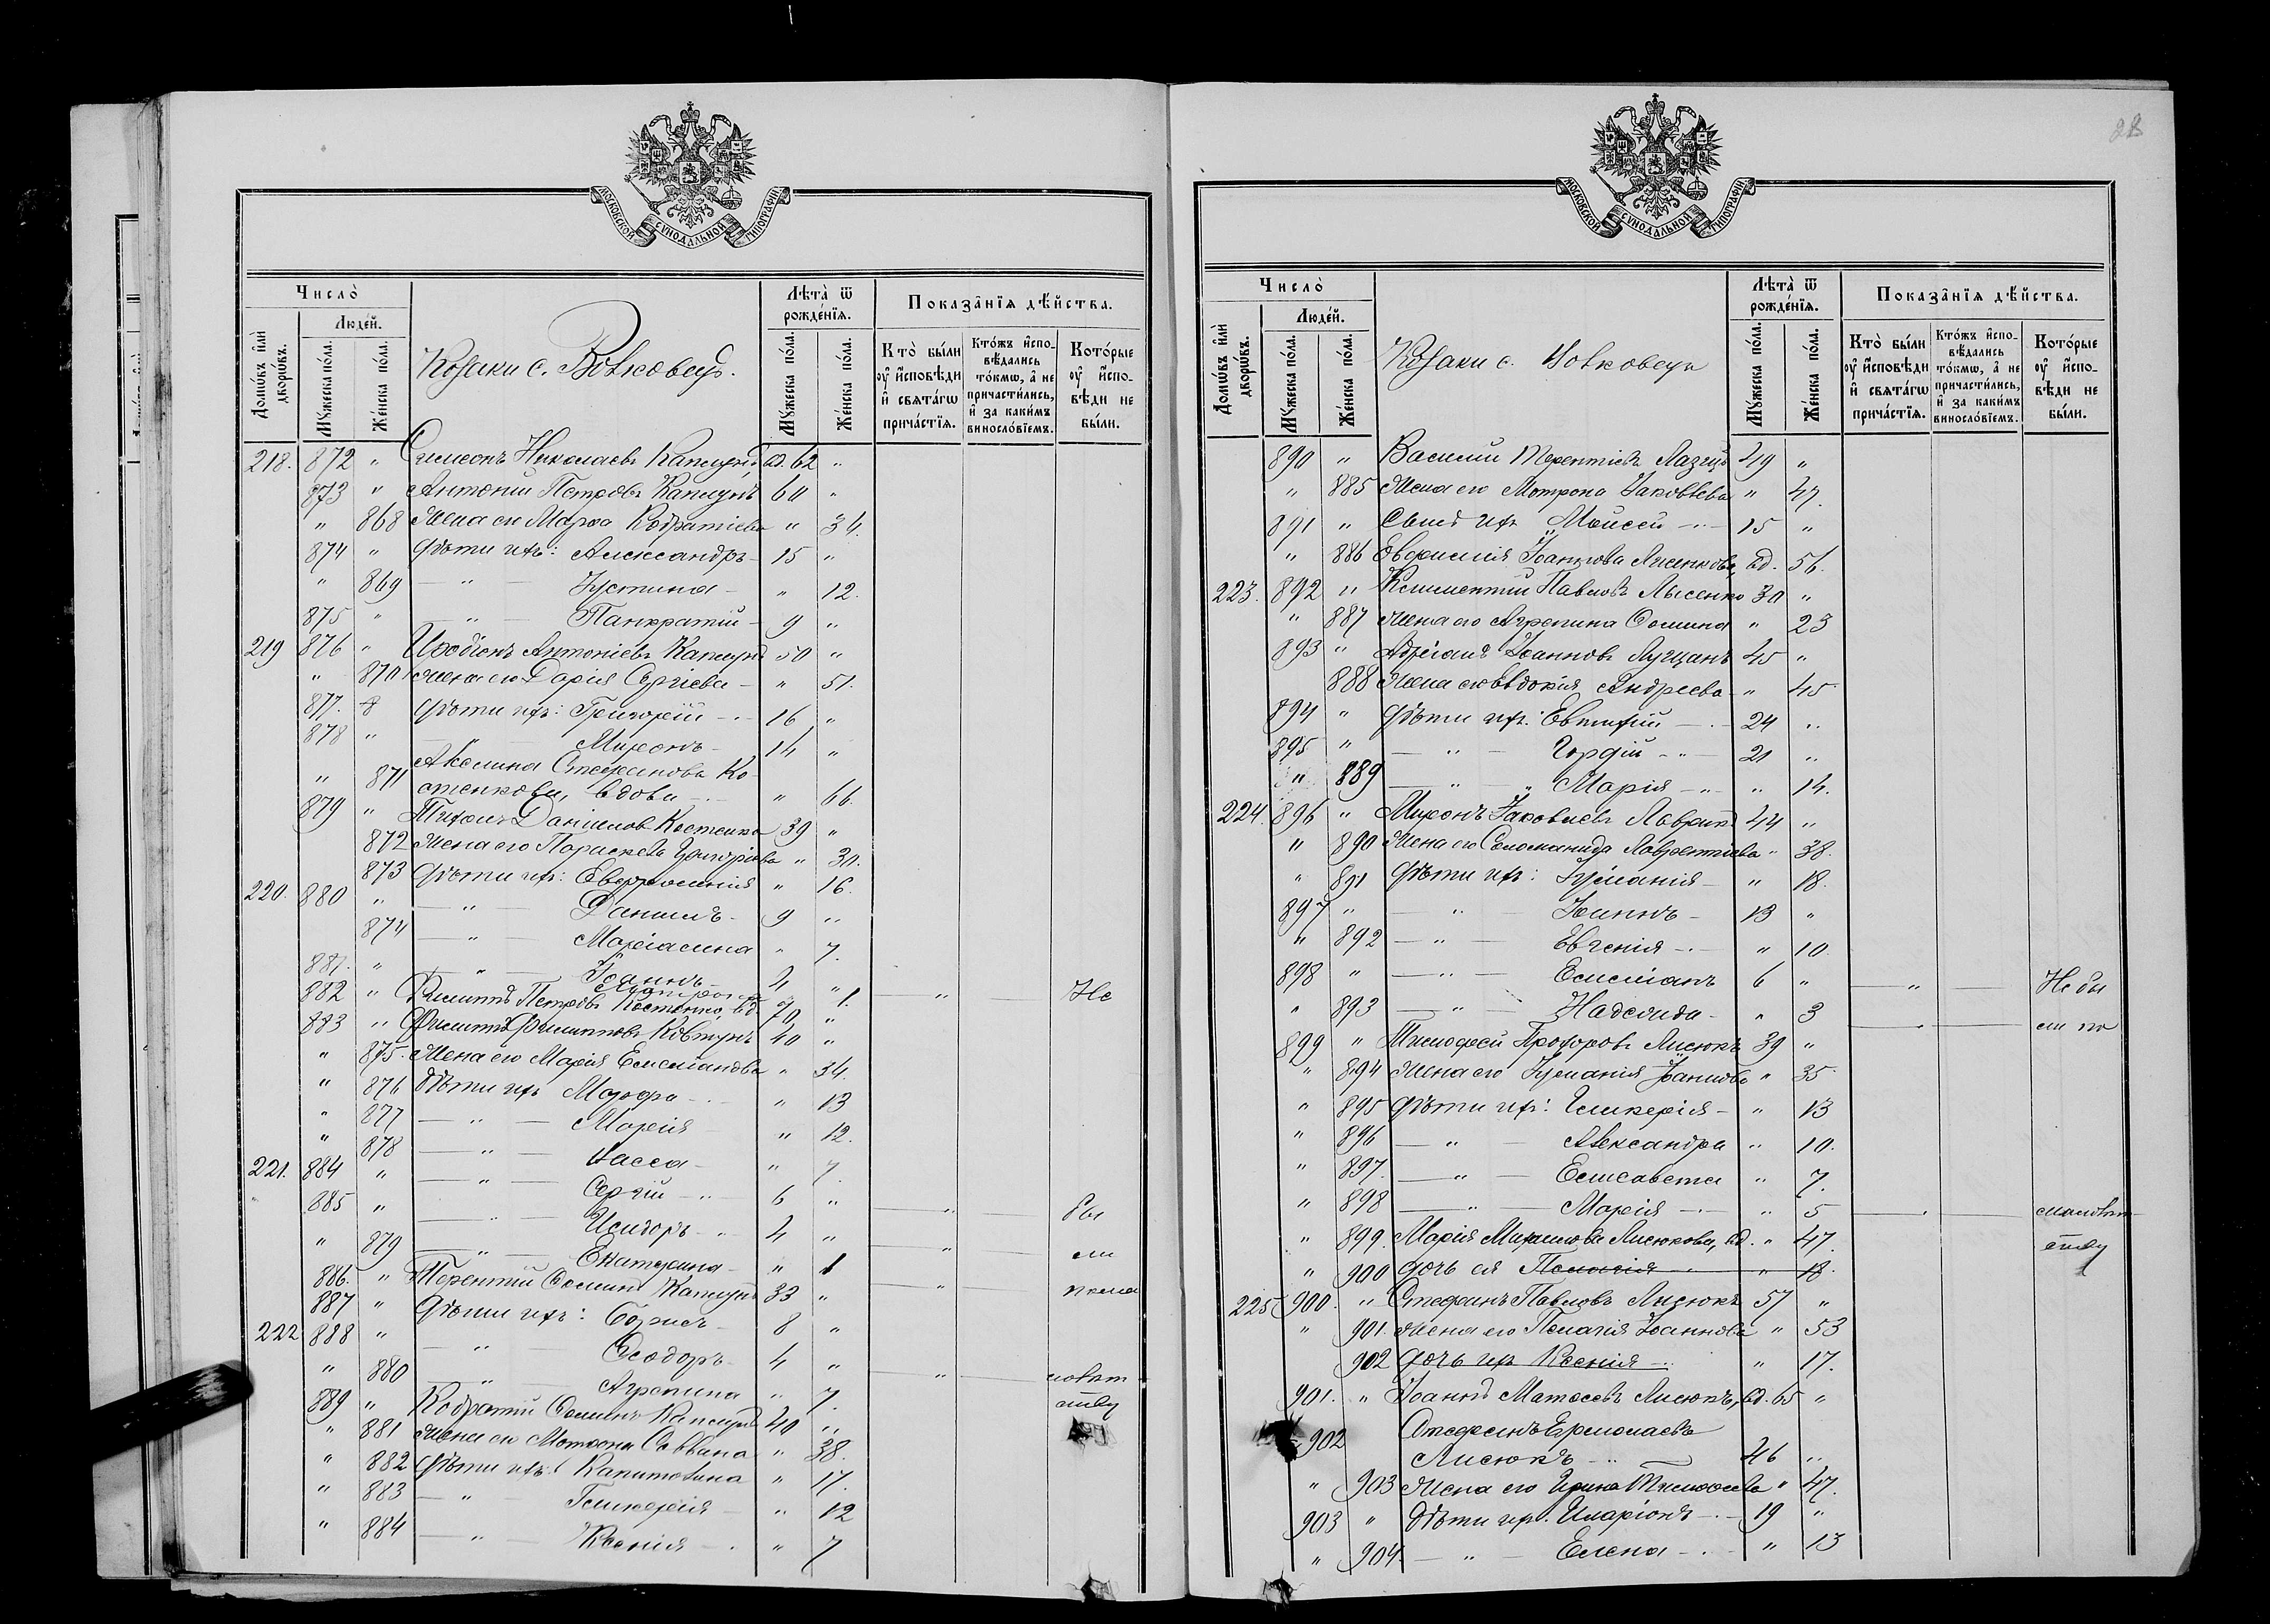 МОСКОВСКОЙ СУНОДАЛЬНОЙ ТИПОГРАФІИ
Число̀
Людей.
Домѡвъ и҆лѝ дворѡвъ.
Мꙋжеска по́ла.
Же́нска по́ла.
Козаки с. Волковецъ.
Лѣта̀ ѿ рожде́нїѧ.
Мꙋжеска по́ла.
Же́нска по́ла.
Показа̑нїѧ дѣ́йства.
Кто̀ бы́ли оу҆ и҆сповѣди и҆ свѧта́гѡ прича́стїѧ.
Кто́жъ и҆сповѣдались то́кмѡ, а҆ не причасти́лись, и҆ за каки́мъ винослóвїемъ.
Кото́рые оу҆ и҆сповѣди не бы́ли.
218. 872 " Симеонъ Николаевъ Капшунъ вд. 62 "
873 " Антоній Петровъ Капшунъ 60 "
" 868 Жена его Марѳа Кодратіева " 34.
874 " Дѣти ихъ: Александръ - 15 "
" 869 — " — Іустина - " 12.
875 " — " — Панкратій - 9 "
219 876 " Иродіонъ Антоніевъ Капшунъ 50 "
" 870 Жена его Дарія Сергіева - " 51.
877. Дѣти ихъ: Григорій - 16 "
878 " — " — Миронъ - 14 "
" 871 Акелина Стефанова Ко-
стенкова, вдова - " 66.
879 " Тихонъ Даніиловъ Костенко 39 "
872 Жена его Параскева Григоріева " 30.
873 Дѣти ихъ: Евфросинія " 16.
220. 880 " — " — Даніилъ - 9 "
874 — " — Маріамна " 7.
881. " — " — Іоаннъ - 4 "
882 " Филиппъ Петровъ Костенко, вд. 70 " — " — Не
883 " Филиппъ Филипповъ Ковтунъ 40 "
" 875. Жена его Марія Емеліанова " 34.
" 876 Дѣти ихъ Марѳа - " 13
" 877 — " — Марія " 12.
" 878 — " — Васса - " 7.
221. 884 " — " — Сергій - 6 "
" 885 " — " — Исидоръ - 4 " — " — бы
" 879 — " — Екатерина - " 1 — " — ли
886. " Терентій Ѳоминъ Капшунъ 33 " — " — по ма
887 " Дѣти ихъ: Борисъ 8 "
222 888 " — " — Ѳеодоръ - 4 "
" 880 — " — Агрипина " 7. — " — лолѣт
889 " Кодратій Ѳоминъ Капшунъ 40 " ству
" 881 Жена его Мотрона Саввина " 38.
" 882 Дѣти ихъ: Капитолина " 17.
" 883 — " — Гликерія - " 12
" 884 — " — Ксенія - " 7
28
МОСКОВСКОЙ СУНОДАЛЬНОЙ ТИПОГРАФІИ
Число̀
Людей.
Домѡвъ и҆лѝ дворѡвъ.
Мꙋжеска по́ла.
Же́нска по́ла.
Козаки с. Волковецъ
Лѣта̀ ѿ рожде́нїѧ.
Мꙋжеска по́ла.
Же́нска по́ла.
Показа̑нїѧ дѣ́йства.
Кто̀ бы́ли оу҆ и҆сповѣди и҆ свѧта́гѡ прича́стїѧ.
Кто́жъ и҆сповѣдались то́кмѡ, а҆ не причасти́лись, и҆ за каки́мъ винослóвїемъ.
Кото́рые оу҆ и҆сповѣди не бы́ли.
890 " Василій Терентіевъ 49 "
" 885 Жена его Мотрона Іаковлева " 47.
891 " Сынъ ихъ Моисей - 15 "
" 886 Евфимія Іоаннова Лисенкова, вд. 56.
223. 892 " Климентій Павловъ Лысенко 30 "
" 887 Жена его Агрипина Ѳомина " 23
893 " Адріанъ Іоанновъ Лущанъ 45 "
888 Жена его Евдокія Андреева - " 45
894 " Дѣти ихъ: Евтихій - 24 "
895 " — " — Гордій - 21 "
" 889 — " — Марія - " 14.
224. 896 " Миронъ Іаковлевъ Лаврикъ 44 "
" 890 Жена его Соломанида Лаврентіева " 38.
" 891 Дѣти ихъ: Іуліанія - " 18.
897 " — " — Іоаннъ - 13 "
" 892 — " — Евгенія - " 10
898 " — " — Емеліанъ 6 " — " — Не бы
" 893 — " — Надежда - " 3 — " — ли по
899 " Тимоѳей Прохоровъ Лисюкъ 39 "
" 894 Жена его Іуліанія Іоаннова " 35
" 895 Дѣти ихъ: Гликерія - " 13
" 896 — " — Александра " 10.
" 897. — " — Елисавета " 7.
" 898 — " — Марія - " 5 — " — малолѣт
" 899. Марія Михаилова Лисюкова, вд. " 47. ству
" 900 Дочь ея Пелагія " 18.
225 900. " Стефанъ Павловъ Лисюкъ 57 "
" 901. Жена его Пелагія Іоаннова " 53
902 Дочь ихъ Ксенія - " 17.
901. " Іоаннъ Матѳеевъ Лисюкъ, вд. 65 "
902 Стефанъ Ермолаевъ
Лисюкъ - 46 "
" 903 Жена его Ирина Тимоѳеева " 47.
903 " Дѣти ихъ: Иларіонъ - 19 "
" 904. — " — Елена - " 13